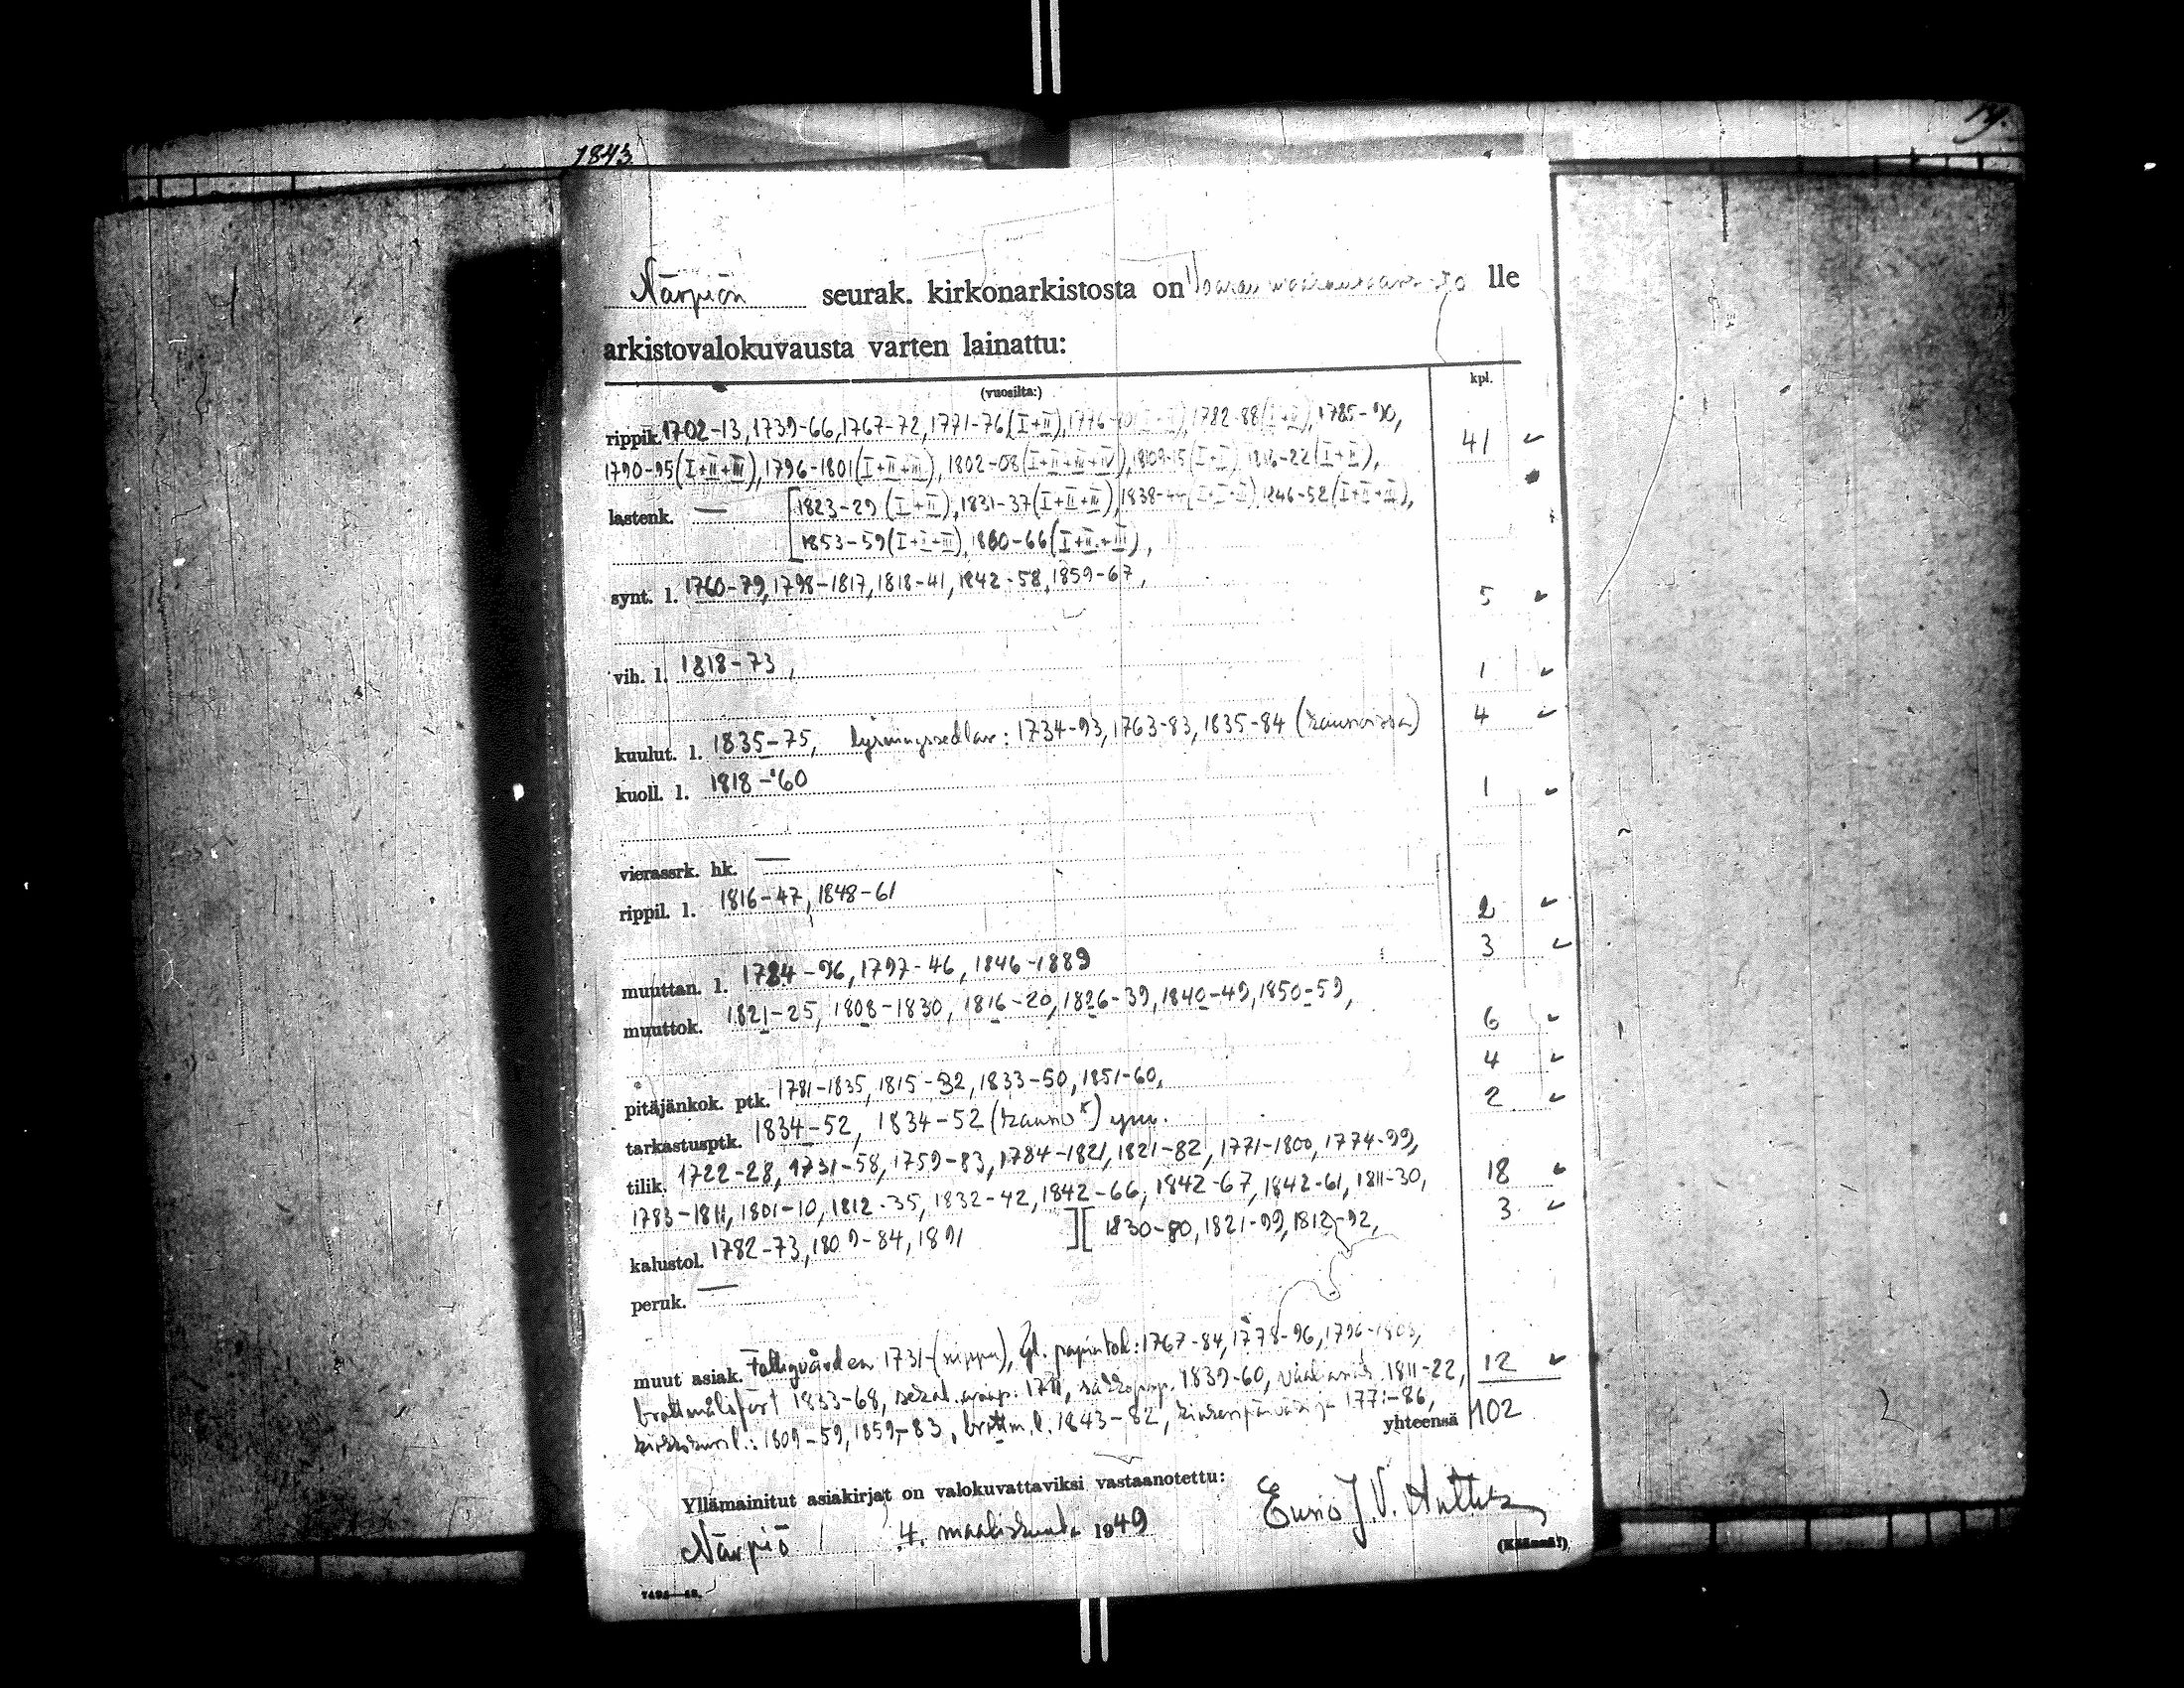 1843
19.
Närpiön seurak. kirkonarkistosta on lle
arkistovalokuvausta varten lainattu:
(vuosilta:) kpl.
rippik. 1702-13, 1739-66, 1767-72, 1771-76 (I+II), 1776- 1782-88 (I+II), 1785-90, 41
1790-95 (I+II+III), 1796-1801 (I+II+III), 1802-08 (I+II+III+IV), 1809-15 (I+II) 1816-22 (I+II),
lastenk. — [1823-29 (I+II), 1831-37 (I+II+III), 1838-44 (I+II+III) 1846-52 (I+II+III),
1853-59 (I+II+III), 1860-66 (I+II+III),
synt. l. 1760-79, 1798-1817, 1818-41, 1842-58, 1859-67, 5
vih. l. 1818-73, 1
kuulut. l. 1835-75, lysningssedlar: 1734-93, 1763-83, 1835-84 4
kuoll. l. 1818-'60 1
vierassrk. hk. —
rippil. l. 1816-47, 1848-61 2
muuttan. l. 1784-96, 1797-46, 1846-1889 3
muuttok. 1821-25, 1808-1830, 1816-20, 1826-39, 1840-49, 1850-59, 6
pitäjänkok. ptk. 1781-1835, 1815-32, 1833-50, 1851-60, 4
tarkastusptk. 1834-52, 1834-52 ym. 2
tilik. 1722-28, 1731-58, 1759-83, 1784-1821, 1821-82, 1771-1800, 1774-99, 18
1783-1811, 1801-10, 1812-35, 1832-42, 1842-66, 1842-67, 1842-61, 1811-30,
kalustol. 1782-73, 1809-84, 1891 ][ 1830-80, 1821-99, 1812-92, 3
peruk. —
muut asiak. Fattigvården 1731- (nippu), 1767-84, 1778-96, 1796-1803, 12
brottmålsfört 1833-68, sekal. 1711, 1839-60, 1811-22,
1809-59, 1859-83, brottm. l. 1843-82, 177 -86,
yhteensä 102
Yllämainitut asiakirjat on valokuvattaviksi vastaanotettu:
Närpiö 4. maaliskuuta 1949 Euno J. V.
(Käännä!)